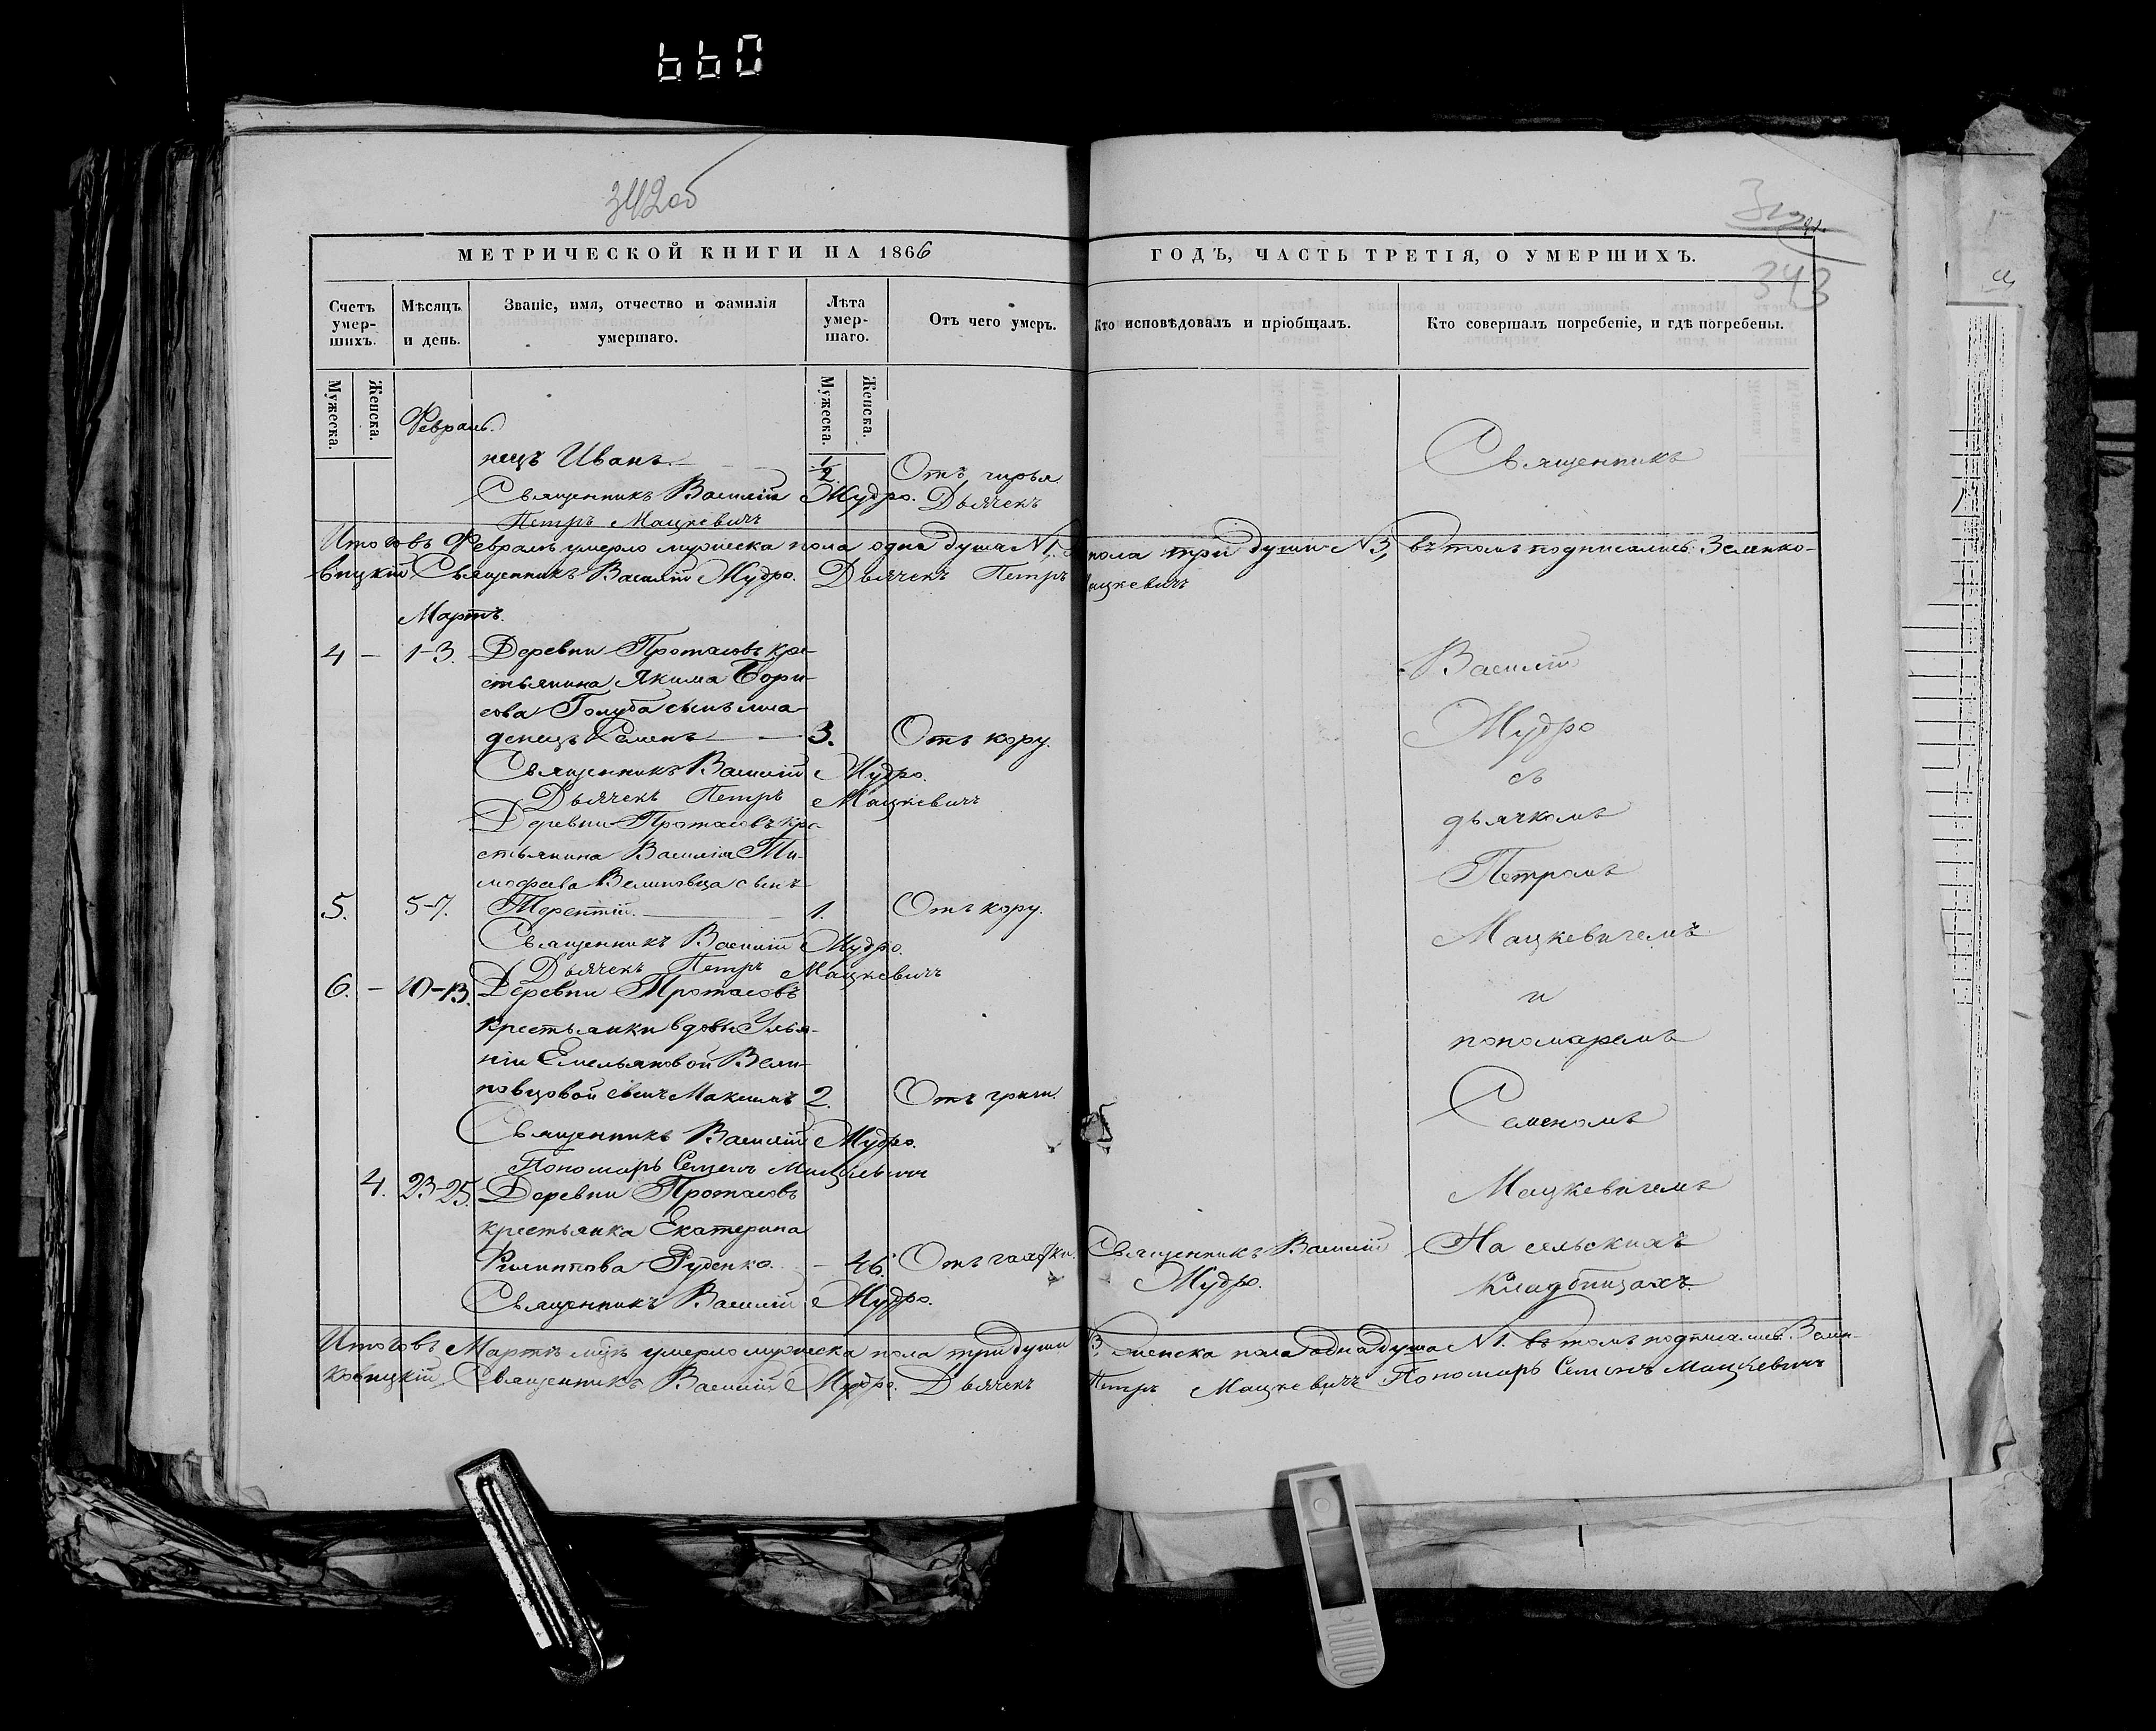 660
342об
343
МЕТРИЧЕСКОЙ КНИГИ НА 1866
ГОДЪ, ЧАСТЬ ТРЕТІЯ, О УМЕРШИХЪ.
Счетъ умершихъ.
Мѣсяцъ и день.
Званіе, имя, отчество и фамилія умершаго.
Лѣта умершаго.
Отъ чего умеръ.
Кто исповѣдовалъ и пріобщалъ.
Кто совершалъ погребеніе, и гдѣ погребены.
Мужеска.
Женска.
Мужеска.
Женска.
Февраль.
нецъ Иванъ. 1/2.
Священникъ Василій Мудро. Дьячекъ
Петръ Мацкевичъ
Итого въ Февралѣ умерло мужеска пола одна душа N1, пола три души N3, въ томъ подписались: Зеленко-
вицкій Священникъ Василій Мудро. Дьячекъ Петръ Мацкевичъ
Мартъ.
4 – 1-3. Деревни Протасовъ кре-
стьянина Якима Бори-
сова Голуба сынъ мла-
денецъ Семенъ 3. Отъ кору.
Священникъ Василій Мудро.
Дьячекъ Петръ Мацкевичъ
Деревни Протасовъ кре-
стьянина Василія Ти-
мофеева сынъ
5. 5-7. Терентій. 1. Отъ кору.
Священникъ Василій Мудро.
Дьячекъ Петръ Мацкевичъ
6. – 10-13. Деревни Протасовъ
крестьянки вдовы Улья-
ніи Емельяновой
сынъ Максимъ 2.
Священникъ Василій Мудро.
Пономарь Семенъ Мацкевичъ
4. 23-25. Деревни Протасовъ
крестьянка Екатерина
Филиппова Руденко. – 46. Отъ
Священникъ Василій Мудро.
Итого въ Мартѣ м̃цѣ умерло мужеска пола три души N3, женска пола одна душа N1. въ томъ подписались: Зелен-
ковицкій Священникъ Василій Мудро. Дьячекъ Петръ Мацкевичъ Пономарь Семенъ Мацкевичъ
Священникъ Василій
Мудро.
Священникъ
Василій
Мудро
съ
дьячкомъ
Петромъ
Мацкевичемъ
и
пономаремъ
Семеномъ
Мацкевичемъ
На сельскихъ
кладбищахъ.